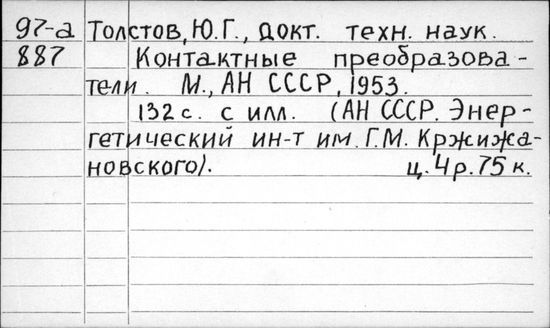 97-а Толстов, Ю.Г., докт. техн. наук.
887 Контактные преобразова-
тели. М., АН СССР, 1953.
132 с. с илл. (АН СССР. Энер-
гетический ин-т им. Г.М. Кржижа-
новского). ц. 4 р. 75 к.